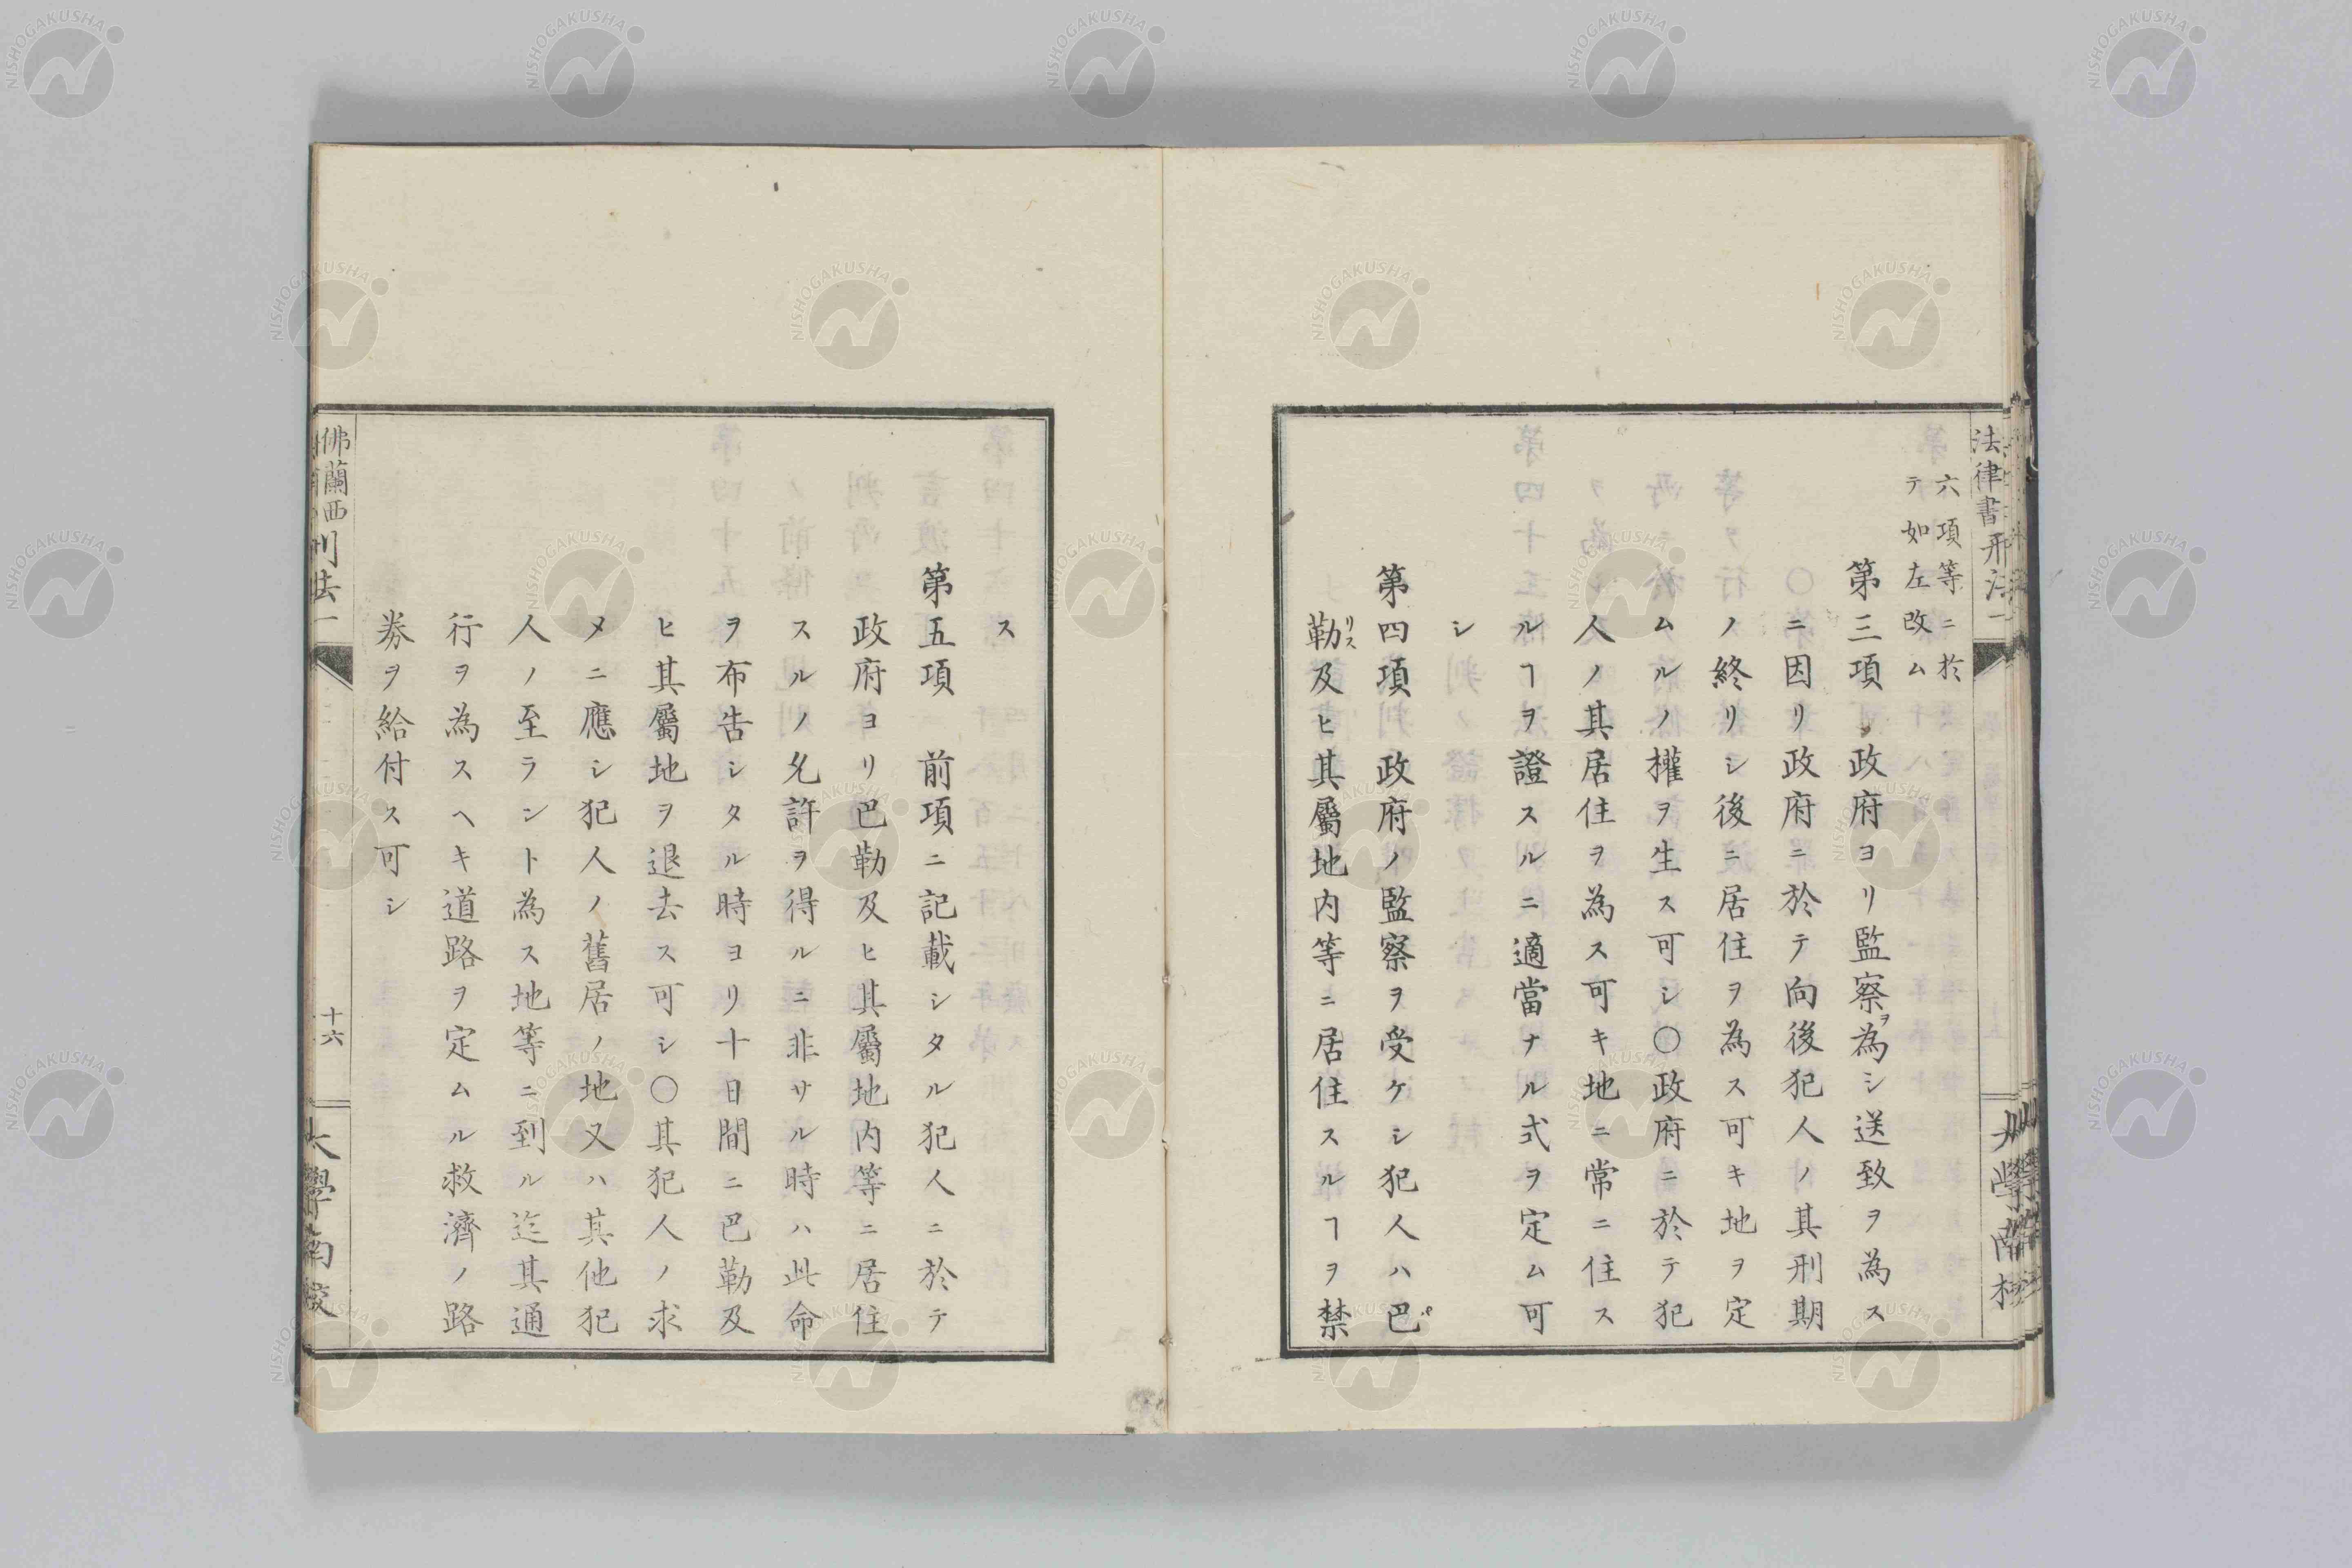 法律書刑法一
六項等ニ於
テ如左改ム
第三項 政府ヨリ監察ヲ為シ送致ヲ為ス
ニ因リ政府ニ於テ向後犯人ノ其刑期
ノ終リシ後ニ居住ヲ為ス可キ地ヲ定
ムルノ權ヲ生ス可シ〇政府ニ於テ犯
人ノ其居住ヲ為ス可キ地ニ常ニ住ス
ルヿヲ證スルニ適當ナル式ヲ定ム可
シ
第四項 政府ノ監察ヲ受ケシ犯人ハ巴
勒及ヒ其屬地内等ニ居住スルヿヲ禁
ス
第五項 前項ニ記載シタル犯人ニ於テ
政府ヨリ巴勒及ヒ其屬地内等ニ居住
スルノ允許ヲ得ルニ非サル時ハ此命
ヲ布告シタル時ヨリ十日間ニ巴勒及
ヒ其屬地ヲ退去ス可シ〇其犯人ノ求
メニ應シ犯人ノ舊居ノ地又ハ其他犯
人ノ至ラント為ス地等ニ到ル迄其通
行ヲ為スヘキ道路ヲ定ムル救濟ノ路
券ヲ給付ス可シ
佛蘭西刑法一
十六
大學南校
NISHOGAKUSHA